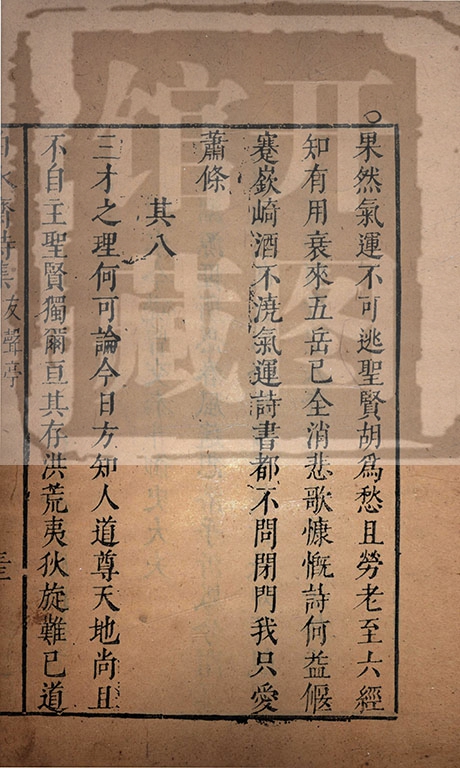 果然氣運不可逃聖賢胡爲愁且勞老至六經
知有用衰來五岳已全消悲歌慷慨詩何益偃
蹇嶔崎酒不澆氣運詩書都不問閉門我只愛
蕭條
其八
三才之理何可論今日方知人道尊天地尚且
不自王聖賢獨爾亘其存洪荒夷狄旋難已道
友聲亭
开图
馆藏